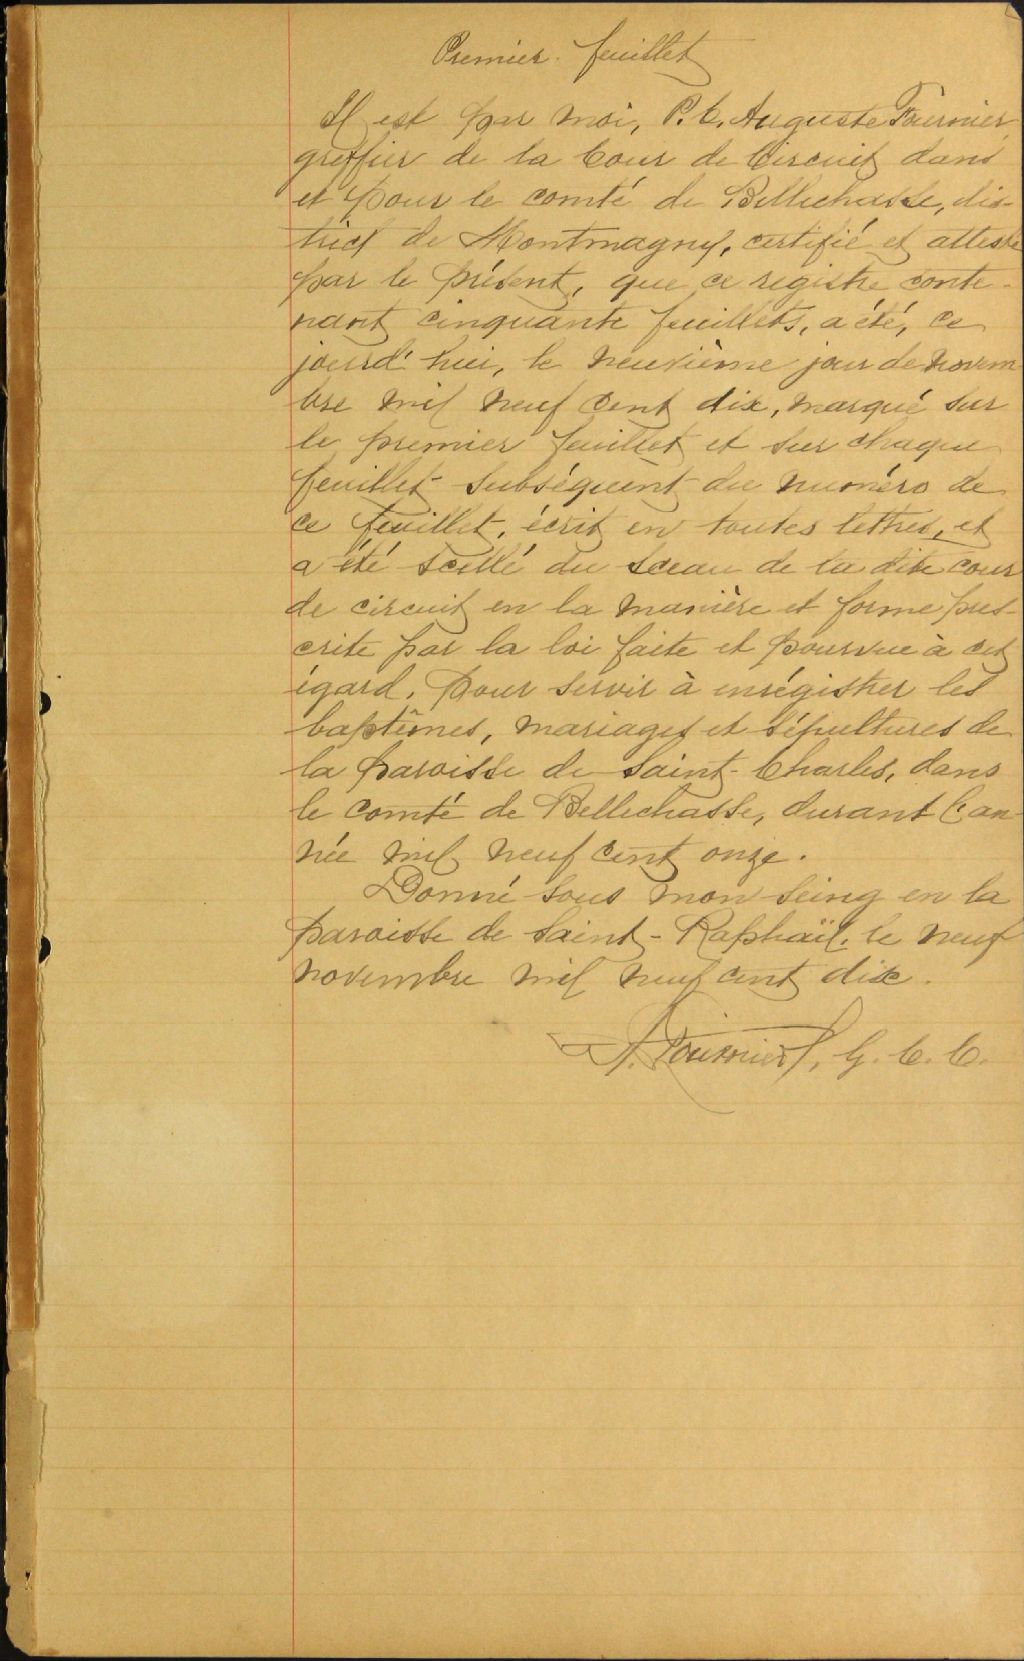 Premier feuillet
Il est par moi, P. C. Auguste Fournier,
greffier de la Cour de Circuit dans
et pour le comté de Bellechasse, dis-
trict de Montmagny, certifié et attesté
par le présent, que ce registre conte-
nant cinquante feuillets, a été, ce
jourd'hui, le neuvième jour de novem
bre mil neuf cent dix, marqué sur
le premier feuillet et sur chaque
feuillet subséquent du numéro de
ce feuillet, écrit en toutes lettres, et
a été scellé du sceau de la dite cour
de circuit en la manière et forme pres-
crite par la loi faite et pourvue à cet
égard, pour servir à enrégistrer les
baptêmes, mariages et sépultures de
la paroisse de Saint-Charles, dans
le comté de Bellechasse, durant l'an-
née mil neuf cent onze.
Donné sous mon seing en la
paroisse de Saint-Raphaël, le neuf
novembre mil neuf cent dix.
A. Fournier, G. C. C.